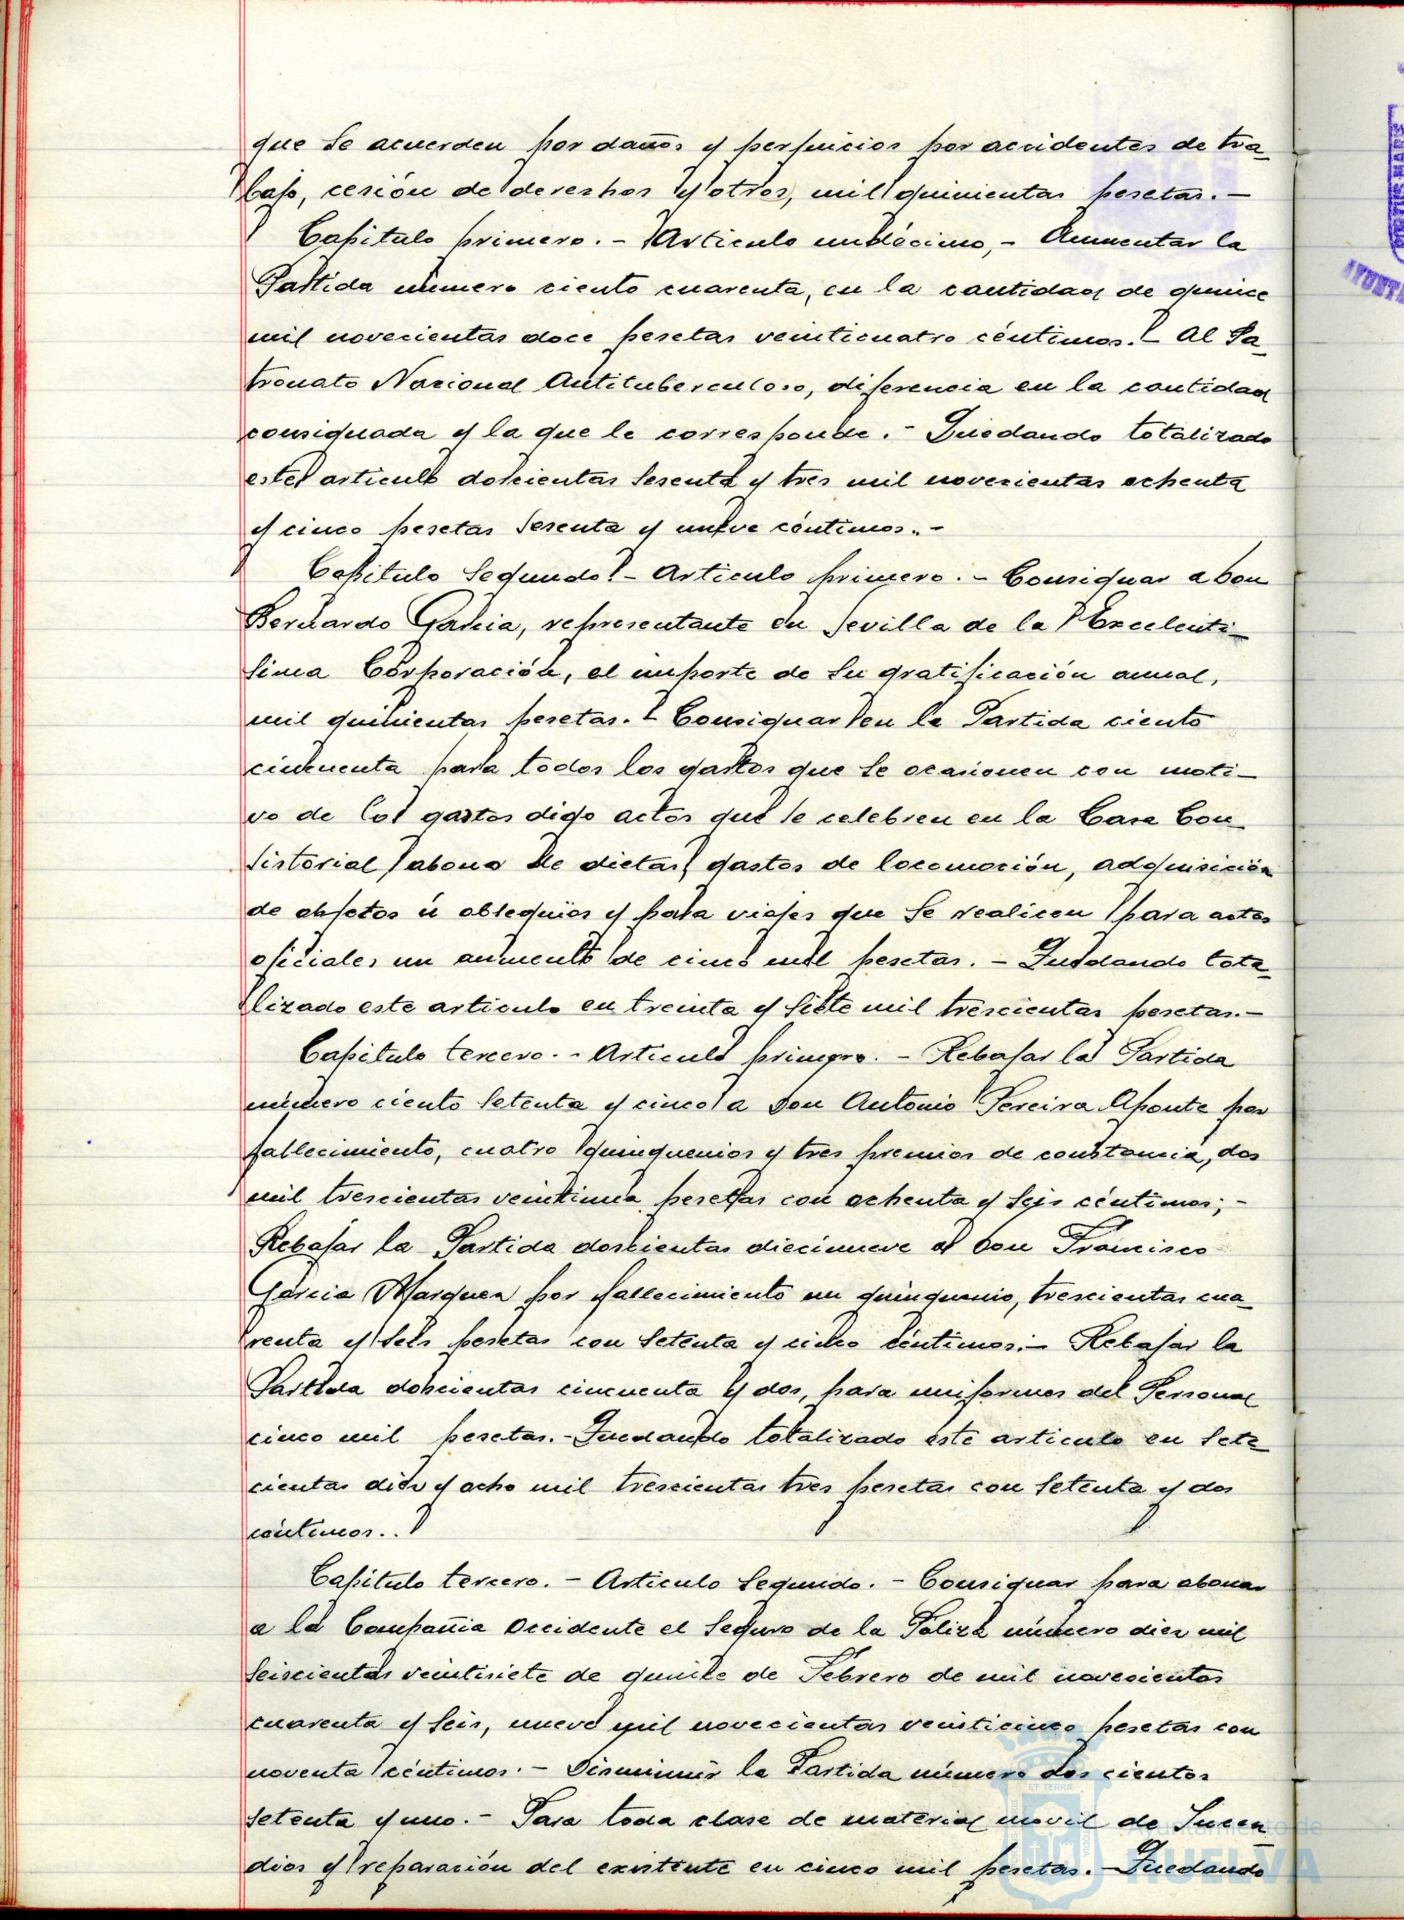 que se acuerden por daños y perjuicios por accidentes de tra-
bajo, cesión de derechos y otros, mil quinientas pesetas. -
Capitulo primero. - Articulo undécimo, - Aumentar la
Partida número ciento cuarenta, en la cantidad de quince
mil novecientas doce pesetas veinticuatro céntimos. - Al Pa-
tronato Nacional Antituberculoso, diferencia en la cantidad
consignada y la que le corresponde. - Quedando totalizado
este articulo doscientas sesenta y tres mil novecientas ochenta
y cinco pesetas sesenta y nueve céntimos. -
Capitulo segundo. - Articulo primero. - Consignar a Don
Bernardo Garcia, representante en Sevilla de la Excelenti-
sima Corporación, el importe de su gratificación anual,
mil quinientas pesetas. - Consignar en la Partida ciento
cincuenta para todos los gastos que se ocasionen con moti-
vo de los gastos digo actos que se celebren en la Casa Con
sistorial, abono de dietas, gastos de locomoción, adquisición
de objetos ú obsequios y para viajes que se realicen para actos
oficiales un aumento de cinco mil pesetas. - Quedando tota-
lizado este articulo en treinta y siete mil trescientas pesetas. -
Capitulo tercero. - Articulo primero. - Rebajar la Partida
número ciento setenta y cinco a Don Antonio Pereira Aponte por
fallecimiento, cuatro quinquenios y tres premios de constancia, dos
mil trescientas veintinueve pesetas con ochenta y seis céntimos; -
Rebajar la Partida doscientas diecinueve a Don Francisco
Garcia Marquez por fallecimiento un quinquenio, trescientas cua-
renta y seis pesetas con setenta y cinco céntimos. - Rebajar la
Partida doscientas cincuenta y dos, para uniformes del Personal
cinco mil pesetas. - Quedando totalizado este articulo en sete-
cientas diez y ocho mil trescientas tres pesetas con setenta y dos
céntimos..
Capitulo tercero. - Articulo segundo. - Consignar para abonar
a la Compañia Occidente el seguro de la Póliza número diez mil
seiscientas veintisiete de quince de Febrero de mil novecientos
cuarenta y seis, nueve mil novecientas veinticinco pesetas con
noventa céntimos. - Disminuir la Partida número dos cientos
setenta y uno. - Para toda clase de material movil de Incen
dios y reparación del existente en cinco mil pesetas. - Quedando
Ayuntamiento de
HUELVA